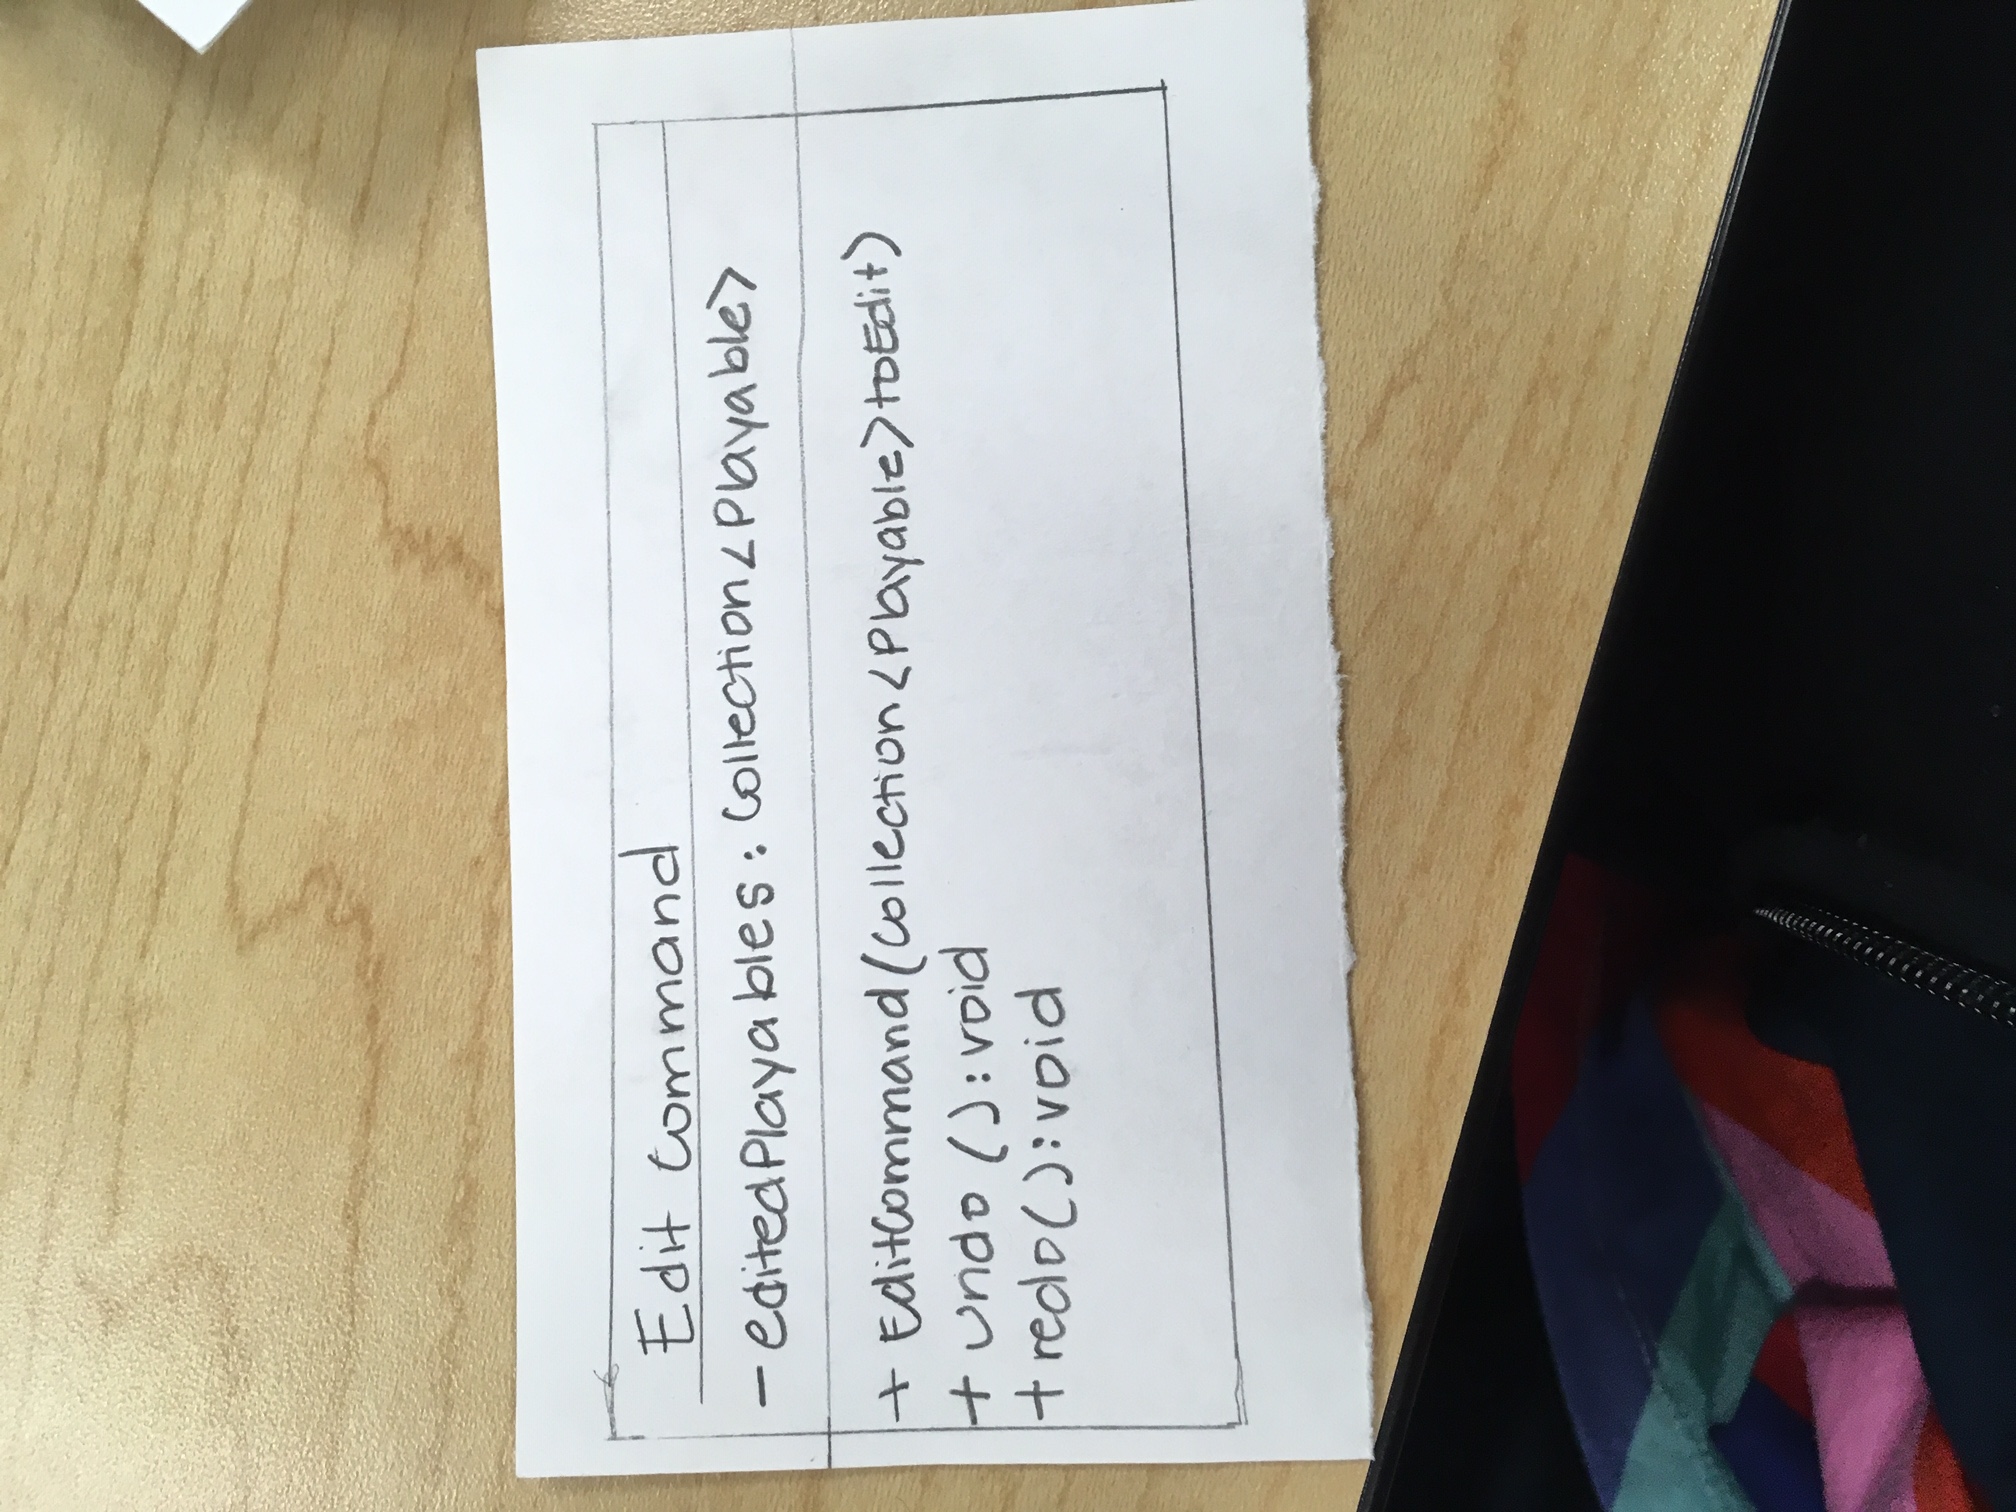 Edit Command
- editedPlayables: Collection<Playable>
+ EditCommand(Collection<Playable>toEdit)
+ undo (): void
+ redo(): void